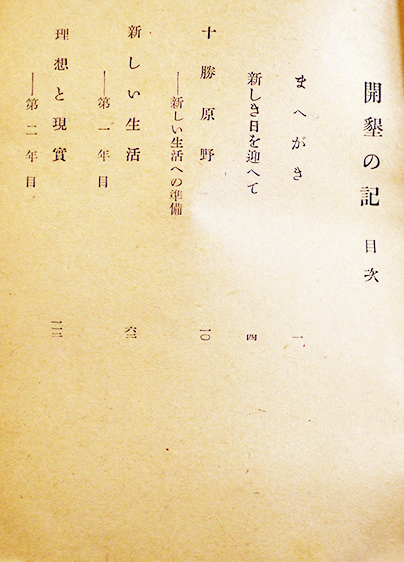 開墾の記 目次
まへがき 一
新しき日を迎へて 四
十勝原野 一〇
——新しい生活への準備
新しい生活 六三
——第一年目
理想と現實 一一二
——第二年目